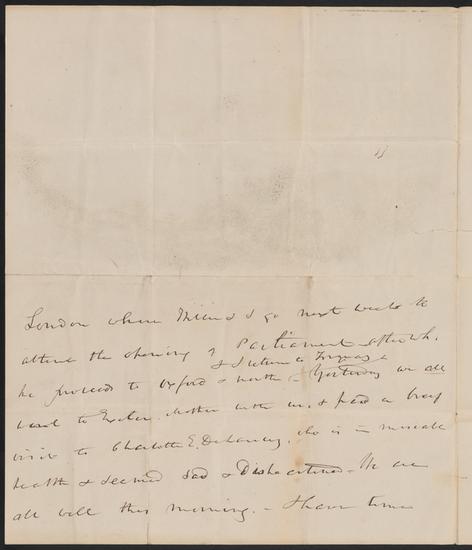 London where & I go next week to
attend the opening of Parliament after wh.
& I return to Torquay
he proceeds to Oxford & north – Yesterday we all
went to Exeter, Mother with us, & paid a brief
visit to Charlotte E. DeLancey, who is in miserable
health & seemed sad & disheartened – We are
all well this morning. – I have time